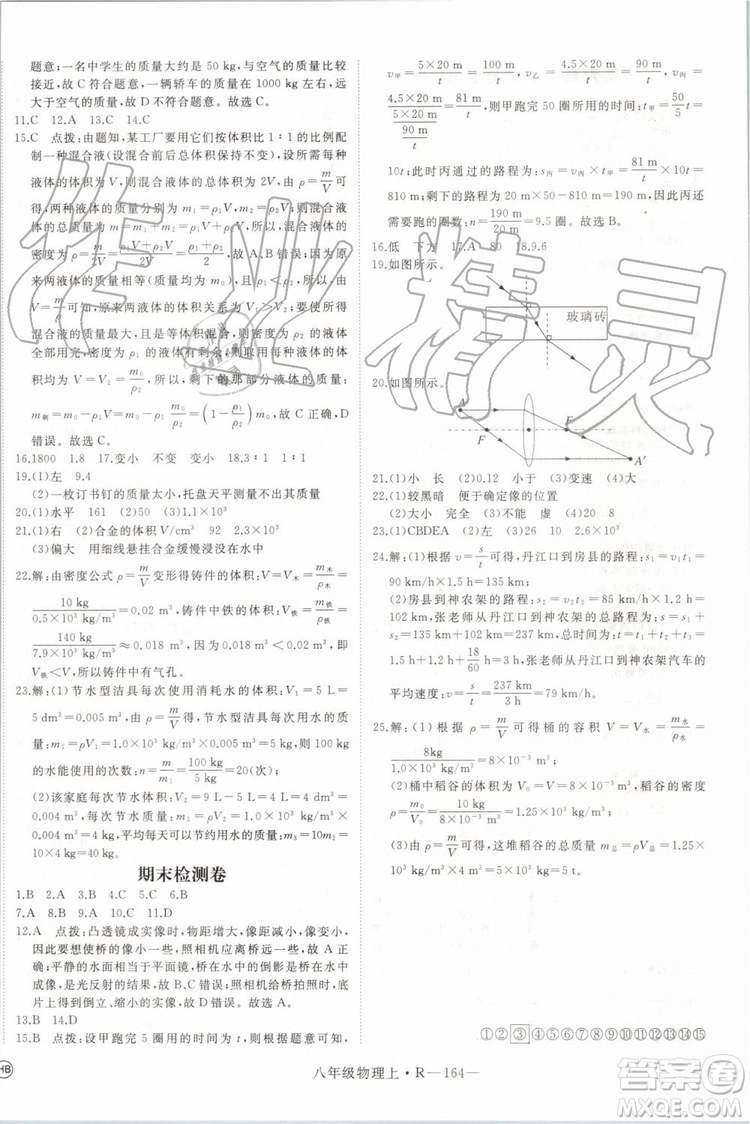 题意；一名中学生的质量大约是 50 kg，与空气的质量比较
接近，故 C 符合题意；一辆轿车在 1000 kg 左右，远
大于空气的质量，故 D 不符合题意。故选 C。
11.C　12.A　13.C　14.C
15.C　点拨：由题知，某工厂要用它们按体积比 1∶1 的比例配
制一种混合液（设混合前后总体积保持不变），且使所得
混合液的质量最大，则
液体的体积为 V，则混合液体的总体积为 2V，由
得，两种液体的质量分别为 m₁=ρ₁V，m₂=ρ₂V，则混合液
密度为 ρ=m/2V=(ρ₁V+ρ₂V)/2V=(ρ₁+ρ₂)/2，故 A、B 错误；因为原
来两液体的质量相等，由于 ρ₁<ρ₂，所以由
V=m/ρ 可知，原来两液体的体积关系为 V₁>V₂；要求所得
混合液的质量最大，且上述密度为 ρ₂ 的液体
全部用完，密度为 ρ₁ 的液体有剩余；则此时每种液体的体
积均为 V=V₂=m₀/ρ₂，所以，剩下的那部分液体的质量：
m剩=m₀-ρ₁V=m₀-ρ₁·m₀/ρ₂=(1-ρ₁/ρ₂)m₀，故 C 正确，D
错误。故选 C。
16.1800　1.8　17.变小　不变　变小　18.3∶1　1∶1
19.(1)左　9.4
(2)一枚订书钉的质量太小，托盘天平测量不出来
20.(1)水平　161　(2)50　(3)1.1×10³
21.(1)右　(2)合金的体积 V/cm³　92　2.3×10³
(3)偏大　用细线悬挂合金缓慢浸没在水中
22.解：由密度公式 ρ=m/V 变形得铸件的体积：V=V木=m木/ρ木=
10 kg/(0.5×10³ kg/m³)=0.02 m³，铸件中铁的体积：V铁=m铁/ρ铁=
140 kg/(7.9×10³ kg/m³)≈0.018 m³，因为 0.018 m³<0.02 m³，即
V铁<V。所以铸件中有气孔。
23.解：(1)节水型洁具每次使用消耗水的体积：V₁=5 L=
5 dm³=0.005 m³，由 ρ=m/V 可得，节水型洁具每次用水的
质量：m₁=ρ水V₁=1.0×10³ kg/m³×0.005 m³=5 kg，则 100 kg
的水能使用的次数：n=m/m₁=100 kg/5 kg=20(次)；
(2)该家庭每次节水体积 V₂=9 L-5 L=4 L=4 dm³=
0.004 m³，则每次节约水的质量：m₂=ρ水V₂=1.0×10³ kg/m³×
0.004 m³=4 kg，平均每天可以节约用水的质量：m₃=10m₂=
10×4 kg=40 kg。
期末检测卷
1.B　2.A　3.C　4.C　5.C　6.B
7.A　8.B　9.D　10.C　11.D
12.A　点拨：凸透镜成实像时，物距增大，像距减小，像变小，
因此要想使桥的像小一些，照相机应离桥远一些，故 A 正
确；平静的水面相当于平面镜，桥在水中的倒影是桥在水中
成像，是光反射的结果，故 B 错误；给桥拍照时，在照相机的
底片上得到倒立、缩小的实像，故 D 错误。故选 A。
13.B　14.D
15.B　点拨：设甲跑完 5 圈用的时间为 t，则根据题意可知，
v甲=(5×20 m)/t，v乙=(4.5×20 m)/t=90 m/t，v丙=
(4.5×20 m)/t=81 m/t，则甲跑完 50 圈所用的时间：t甲=50/(5/t)=
10t；此时丙通过的路程为：s丙=v丙t甲=81 m/t×10t=
810 m；剩下的路程为 20 m×50-810 m=190 m，因此丙还
需要跑的圈数：n=190 m/20 m=9.5 圈。故选 B。
16.低　下方　17.A　18.9.6
19.如图所示。
玻璃砖
20.如图所示。
A
F
F
A′
21.(1)小　长　(2)0.12　小于　(3)变速　(4)大
22.(1)较黑暗　便于确定像的位置
(2)大小　完全　(3)不能　虚　(4)20　8
23.(1)CBDEA　(2)左　(3)26　10　2.6×10³
24.解：(1)根据 v=s/t 可得，丹江口到房县的路程：s₁=v₁t₁=
90 km/h×1.5 h=135 km；
(2)房县到神农架的路程：s₂=v₂t₂=85 km/h×1.2 h=
102 km，张老师从丹江口到神农架总路程：s=s₁+s₂=
135 km+102 km=237 km，总时间：t=t₁+t₂+t₃=1.5 h+
1.2 h+18/60 h=3 h，张老师从丹江口到神农架汽车的
平均速度：v=s/t=237 km/3 h=79 km/h。
25.解：(1)根据 ρ=m/V 可得桶的容积 V=V水=m水/ρ水=
8kg/(1.0×10³ kg/m³)=8×10⁻³ m³；
(2)桶中稻谷的体积 V₀=V=8×10⁻³ m³，稻谷的密度
ρ=m₀/V₀=10 kg/(8×10⁻³ m³)=1.25×10³ kg/m³；
(3)由 ρ=m/V 可得，这堆稻谷的总质量 m总=ρV总=1.25×
10³ kg/m³×4 m³=5×10³ kg=5 t。
①②③④⑤⑥⑦⑧⑨⑩⑪⑫⑬⑭⑮
HB
八年级物理上·R—164—
作业精灵
答案圈
MXQE.COM